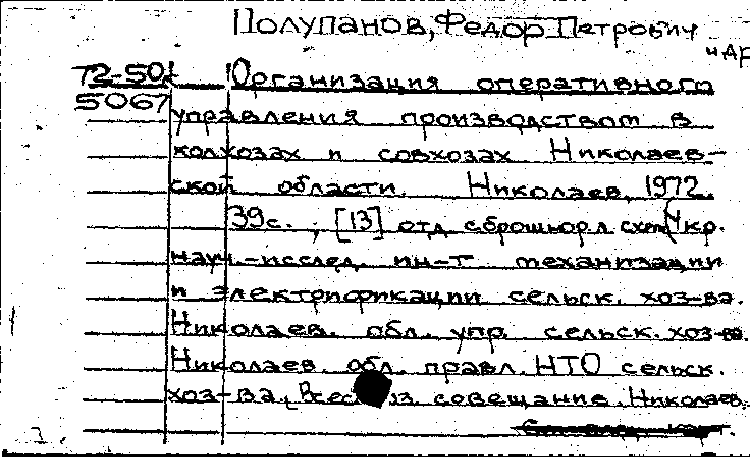 Полупанов, Федор Петрович
и др
72-50
5067
Организация оперативного
управления производством в
колхозах и совхозах Николаев-
ской области. Николаев, 1972.
39с. ; [13] отд. сброшюр. л. схем (Укр.
науч.-исслед. ин-т механизации
и электрификации сельск. хоз-ва.
Николаев. обл. упр. сельск. хоз-ва.
Николаев. обл. правл. НТО сельск.
хоз-ва. совещание. Николаев,